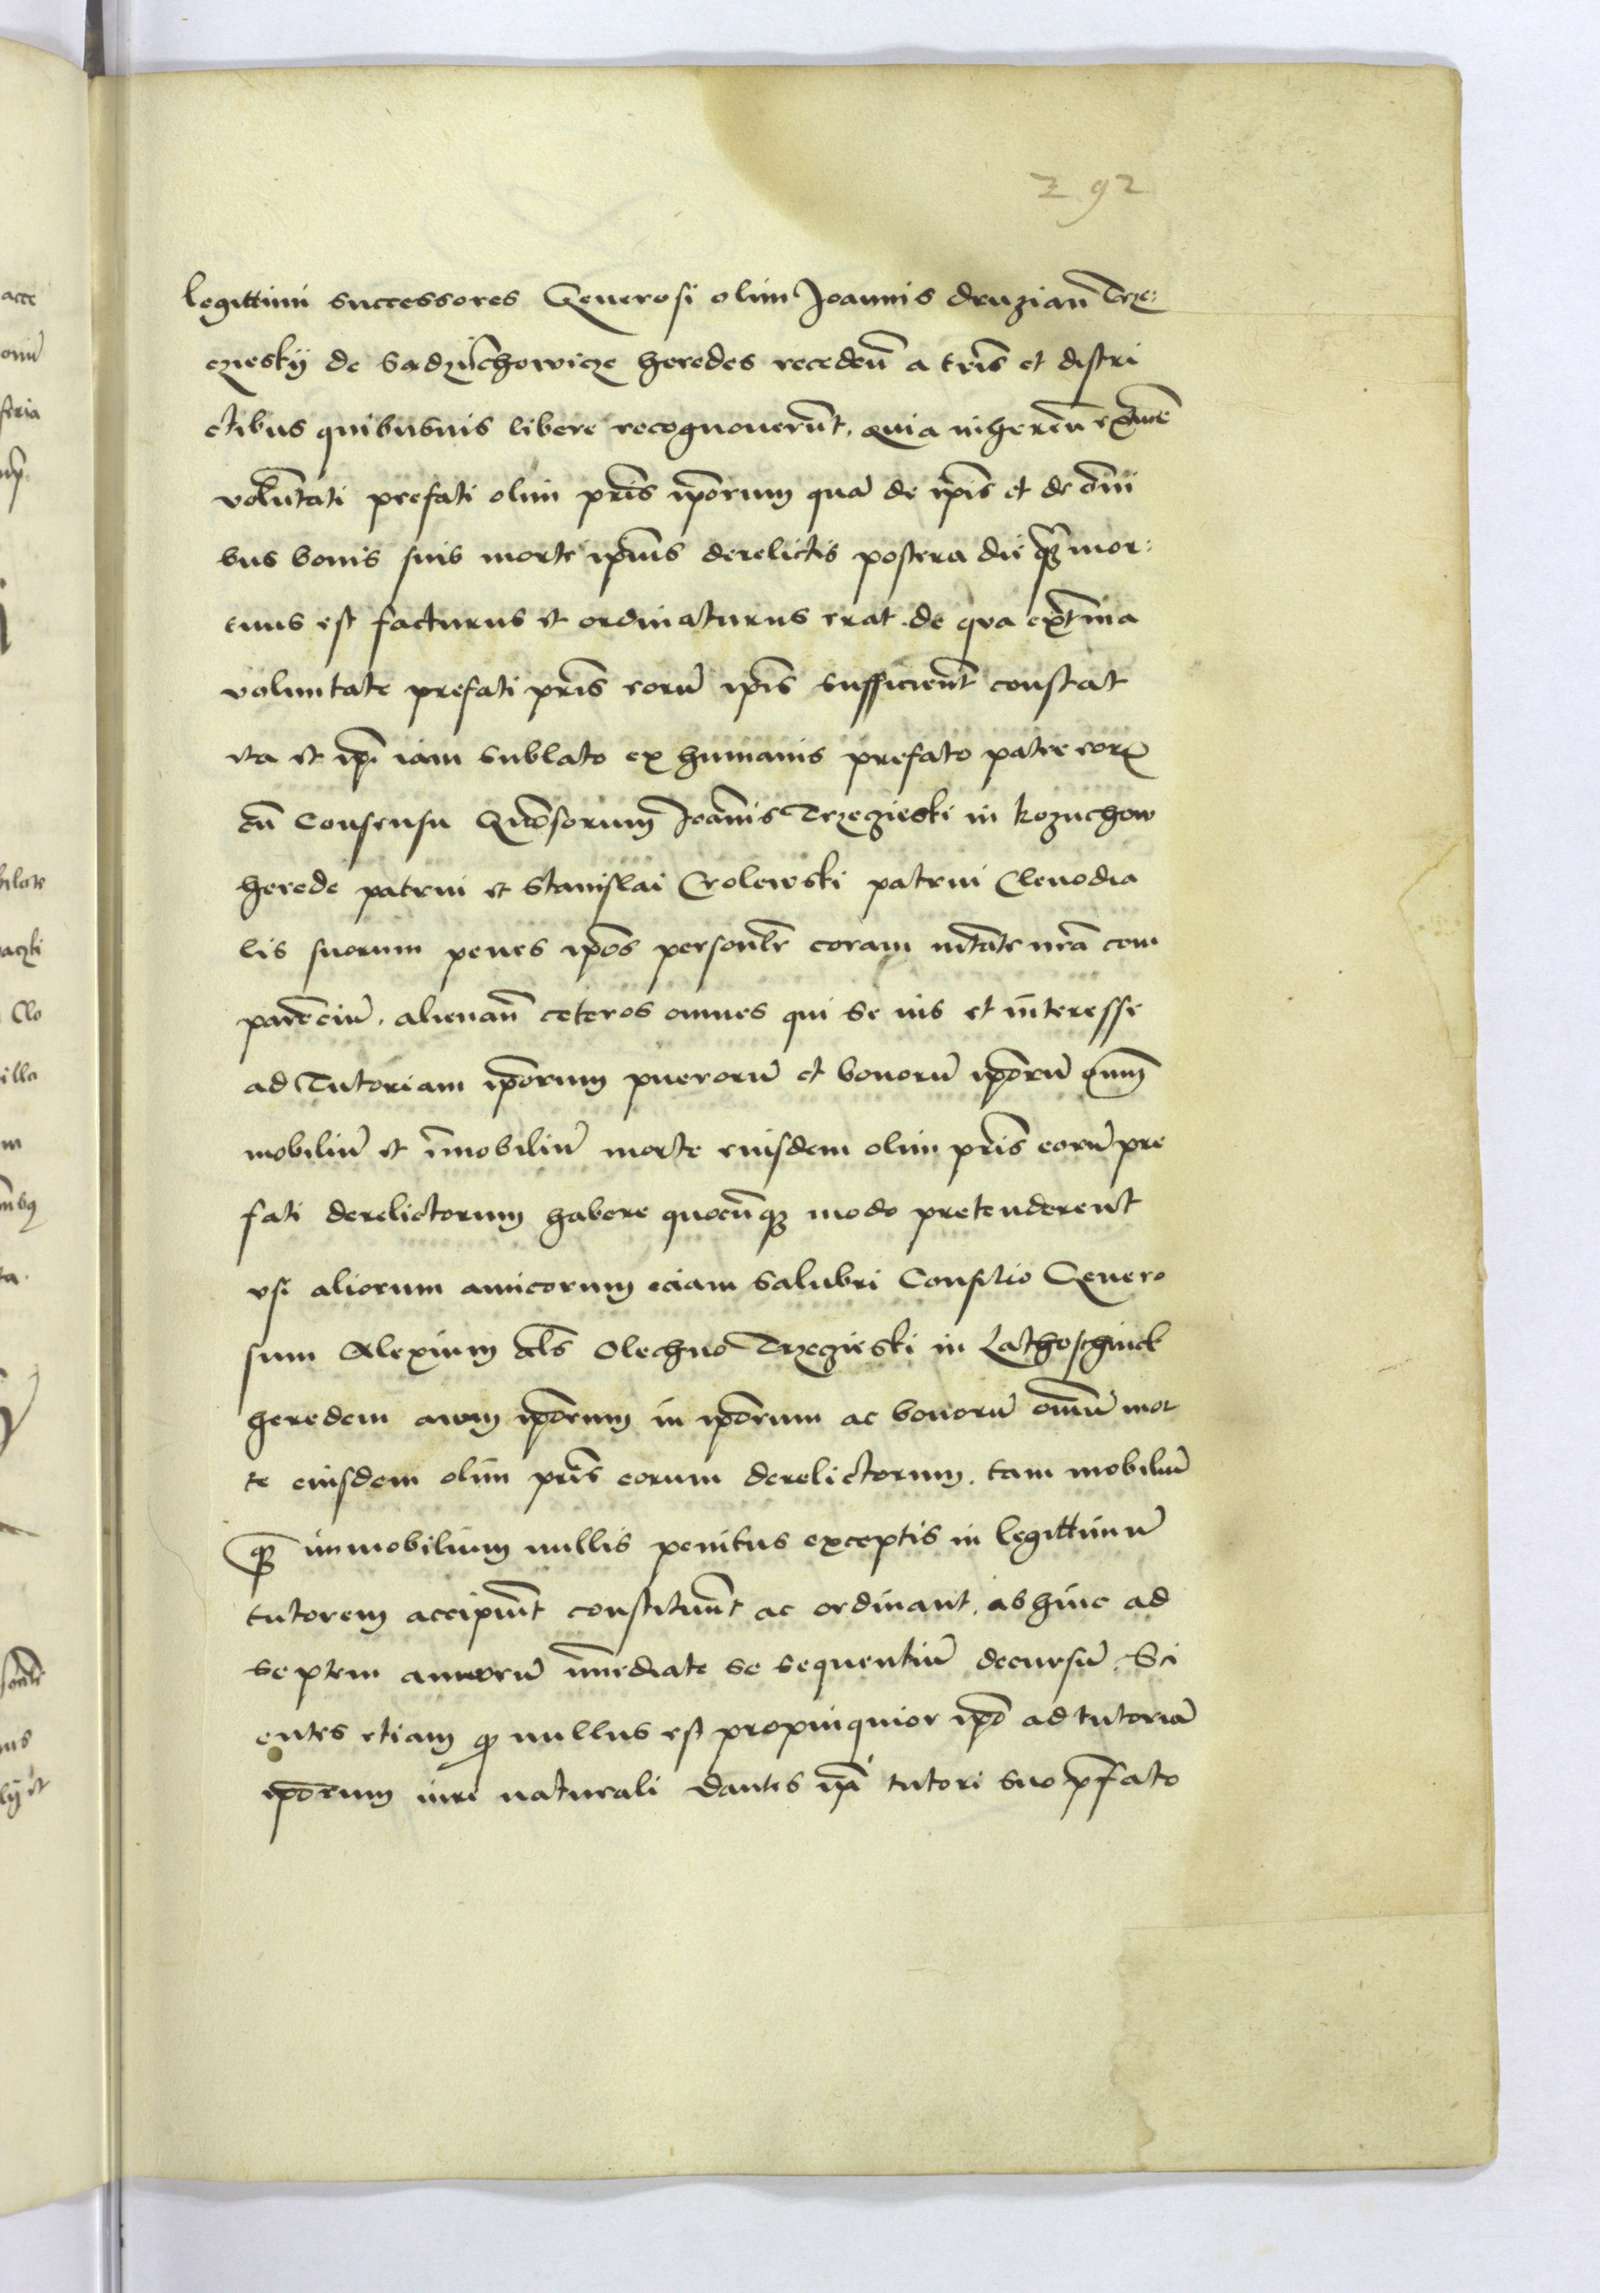 292
legittimi successores Generosi olim Joannis druzian̄ Trze:
czieskÿ de Sadzīchowicze heredes receden̄ a tr̄is et distri
ctibus quibusuis libere recognouerūt, quia inheren̄ extreē
volūtati prefati olim pr̄is ip̄orum quā de ip̄is et de om̄i
bus bonis suis morte ip̄ius derelictis postera die qz̄ mor:
tuus est facturus et ordinaturus erat. de qua extr̄ma
voluntate prefati pr̄is eorū ip̄is sufficienṫ constat
ita et ip̄i iam sublato ex humanis prefato patre eorū
cū Consensu Gn̄osorum Joānis Trzeczieski in kozuchow
herede patrui et Stanislai Crolewski patrui Clenodia
lis suorum penes ip̄os personlr̄ coram mtāte nrā com
parēciū. alienan̄ ceteros omnes qui se ius et īnteresse
ad Tutoriam ip̄orum puerorū et bonorū ip̄orū om̄m̄
mobiliū et īmobiliū morte eiusdem olim pr̄is eorū pre
fati derelictorum habere quocūqz modo pretenderent
vsi aliorum amicorum eciam salubri Consilio Genero
sum Alexium als̄ Olechno Trzeczieski in Lathoschinek
heredem auum ip̄orum in ip̄orum ac bonorū om̄iū mor
te eiusdem olim pr̄is eorum derelictorum. tam mobiliū
qz̄ immobilium nullis penitus exceptis in legittimū
tutorem accipiūt constituūt ac ordinant. abhinc ad
septem annorū īmediate se sequentiū decursū. Sci
entes etiam qz nullus est propinquior ip̄o ad tutoriā
ip̄orum iure naturali dantes ip̄i tutori suo p̄fato